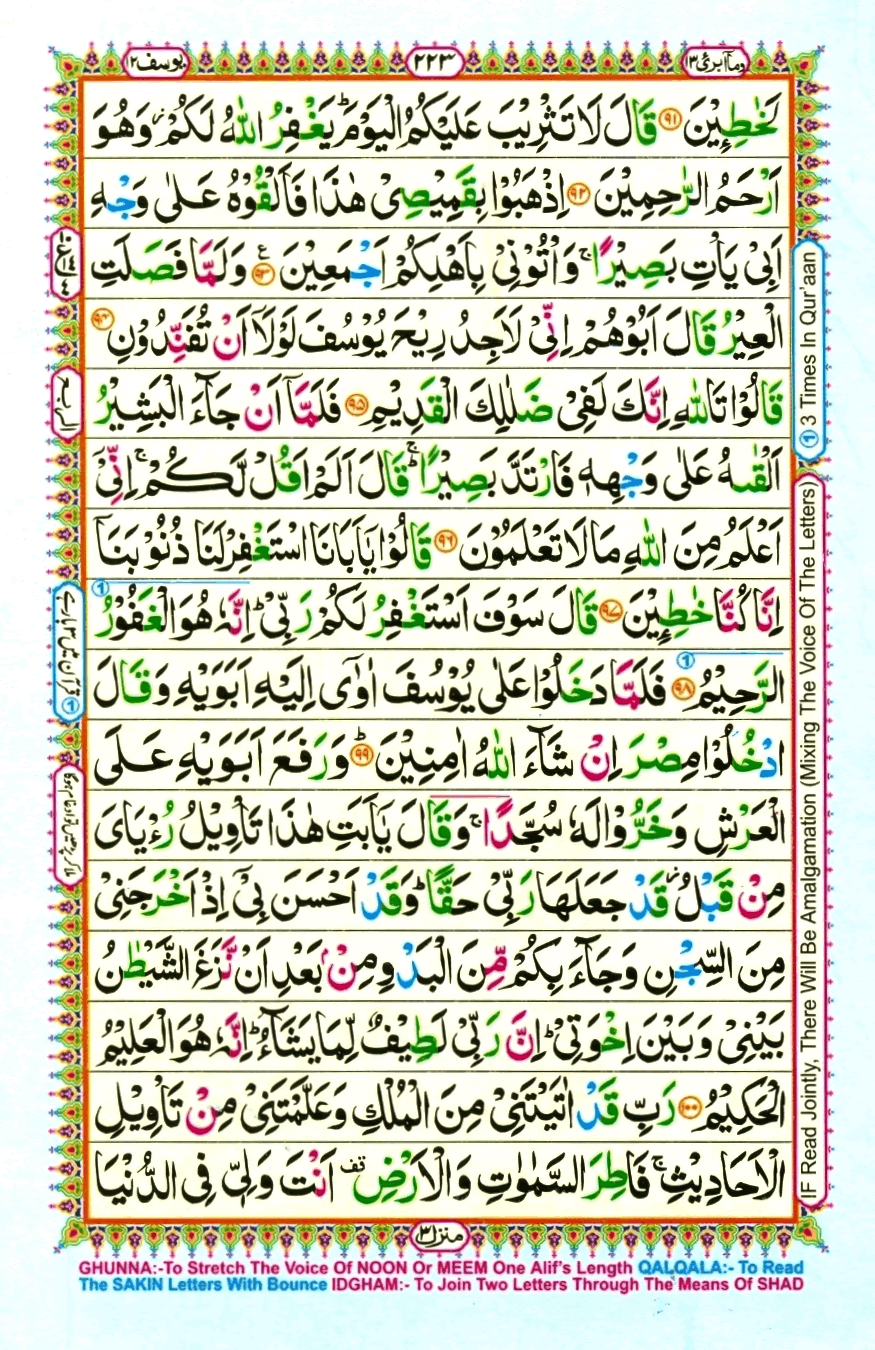 وما ابرئ ١٣
٢٢٣
يوسف ١٢
لَخٰطِـِٕيْنَ ﴿۹۱﴾ قَالَ لَا تَثْرِيْبَ عَلَيْكُمُ الْيَوْمَ ؕ يَغْفِرُ اللّٰهُ لَكُمْ ؗ وَهُوَ
اَرْحَمُ الرّٰحِمِيْنَ ﴿۹۲﴾ اِذْهَبُوْا بِقَمِيْصِيْ هٰذَا فَاَلْقُوْهُ عَلٰى وَجْهِ
اَبِيْ يَاْتِ بَصِيْرًا ۚ وَاْتُوْنِيْ بِاَهْلِكُمْ اَجْمَعِيْنَ ﴿۹۳﴾ ع وَلَمَّا فَصَلَتِ
الْعِيْرُ قَالَ اَبُوْهُمْ اِنِّيْ لَاَجِدُ رِيْحَ يُوْسُفَ لَوْلَاۤ اَنْ تُفَنِّدُوْنِ ﴿۹۴﴾
قَالُوْا تَاللّٰهِ اِنَّكَ لَفِيْ ضَلٰلِكَ الْقَدِيْمِ ﴿۹۵﴾ فَلَمَّاۤ اَنْ جَآءَ الْبَشِيْرُ
اَلْقٰىهُ عَلٰى وَجْهِهٖ فَارْتَدَّ بَصِيْرًا ۚؕ قَالَ اَلَمْ اَقُلْ لَّكُمْ ۚۙ اِنِّيْۤ
اَعْلَمُ مِنَ اللّٰهِ مَا لَا تَعْلَمُوْنَ ﴿۹۶﴾ قَالُوْا يٰۤاَبَانَا اسْتَغْفِرْ لَنَا ذُنُوْبَنَاۤ
اِنَّا كُنَّا خٰطِـِٕيْنَ ﴿۹۷﴾ قَالَ سَوْفَ اَسْتَغْفِرُ لَكُمْ رَبِّيْ ؕ اِنَّهٗ هُوَ الْغَفُوْرُ
الرَّحِيْمُ ﴿۹۸﴾ فَلَمَّا دَخَلُوْا عَلٰى يُوْسُفَ اٰوٰۤى اِلَيْهِ اَبَوَيْهِ وَقَالَ
ادْخُلُوْا مِصْرَ اِنْ شَآءَ اللّٰهُ اٰمِنِيْنَ ﴿۹۹﴾ؕ وَرَفَعَ اَبَوَيْهِ عَلَى
الْعَرْشِ وَخَرُّوْا لَهٗ سُجَّدًا ۚ وَقَالَ يٰۤاَبَتِ هٰذَا تَاْوِيْلُ رُءْيَايَ
مِنْ قَبْلُ ؗ قَدْ جَعَلَهَا رَبِّيْ حَقًّا ؕ وَقَدْ اَحْسَنَ بِيْۤ اِذْ اَخْرَجَنِيْ
مِنَ السِّجْنِ وَجَآءَ بِكُمْ مِّنَ الْبَدْوِ مِنْۢ بَعْدِ اَنْ نَّزَغَ الشَّيْطٰنُ
بَيْنِيْ وَبَيْنَ اِخْوَتِيْ ؕ اِنَّ رَبِّيْ لَطِيْفٌ لِّمَا يَشَآءُ ؕ اِنَّهٗ هُوَ الْعَلِيْمُ
الْحَكِيْمُ ﴿۱۰۰﴾ رَبِّ قَدْ اٰتَيْتَنِيْ مِنَ الْمُلْكِ وَعَلَّمْتَنِيْ مِنْ تَاْوِيْلِ
الْاَحَادِيْثِ ۚ فَاطِرَ السَّمٰوٰتِ وَالْاَرْضِ قف اَنْتَ وَلِيّٖ فِي الدُّنْيَا
الربع
① قرآن میں ۳ بار ہے
① 3 Times In Qur'aan
IF Read Jointly, There Will Be Amalgamation (Mixing The Voice Of The Letters)
منزل ٣
GHUNNA:-To Stretch The Voice Of NOON Or MEEM One Alif's Length QALQALA:- To Read
The SAKIN Letters With Bounce IDGHAM:- To Join Two Letters Through The Means Of SHAD